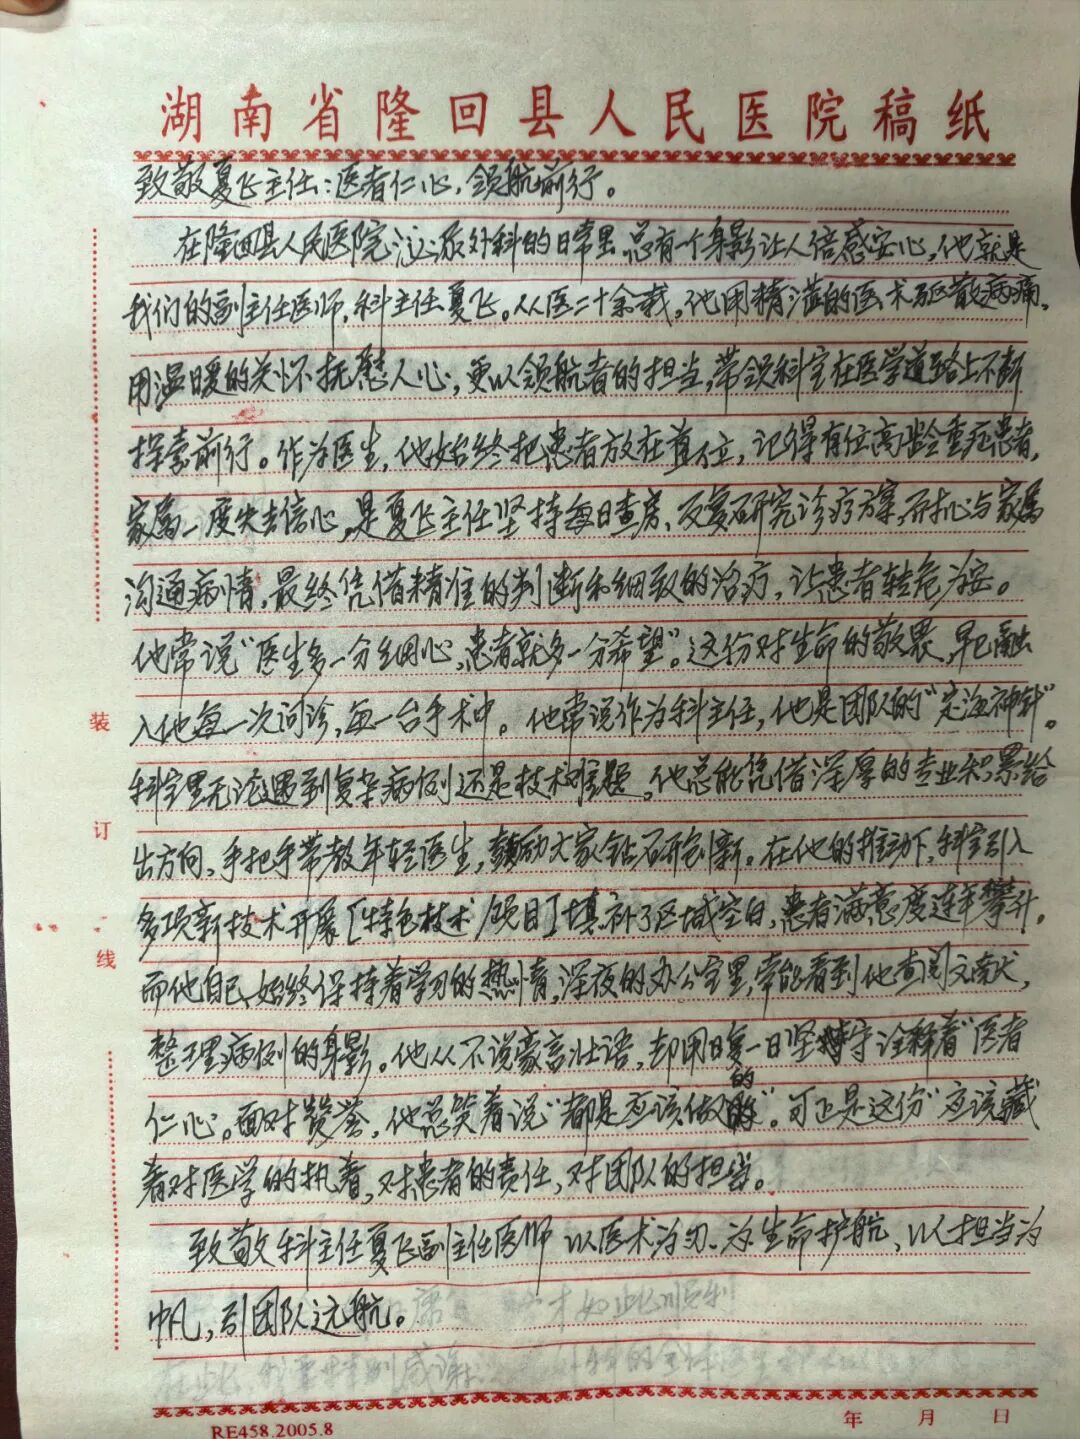 湖南省隆回县人民医院稿纸
致敬夏飞主任：医者仁心，领航前行。
在隆回县人民医院泌尿外科的日常里总有一个身影让人倍感安心，他就是
我们的副主任医师，科主任夏飞。从医二十余载，他用精湛的医术驱散病痛，
用温暖的关怀抚慰人心，更以领航者的担当，带领科室在医学道路上不断
探索前行。作为医生，他始终把患者放在首位，记得有位高龄重症患者，
家属一度失去信心，是夏飞主任坚持每日查房、反复研究诊疗方案，耐心与家属
沟通病情，最终凭借精准的判断和细致的治疗，让患者转危为安。
他常说“医生多一分细心，患者就多一分希望”。这份对生命的敬畏，早已融
入他每一次问诊，每一台手术中。他常说作为科主任，他是团队的“定海神针”。
科室里无论遇到复杂病例还是技术难题，他总能凭借深厚的专业积累给
出方向，手把手带教年轻医生，鼓励大家钻研创新。在他的推动下，科室引入
多项新技术开展［特色技术/项目］填补了区域空白，患者满意度连年攀升。
而他自己，始终保持着学习的热情，深夜的办公室里，常能看到他查阅文献，
整理病例的身影。他从不说豪言壮语，却用日复一日坚守诠释着“医者
仁心。面对赞誉，他总笑着说“都是应该做的”。可正是这份“应该藏
着对医学的执着，对患者的责任，对团队的担当。
致敬科主任夏飞副主任医师 以医术为刃、为生命护航，以担当为
帆，引团队远航。
装
订
线
RE458.2005.8
年 月 日